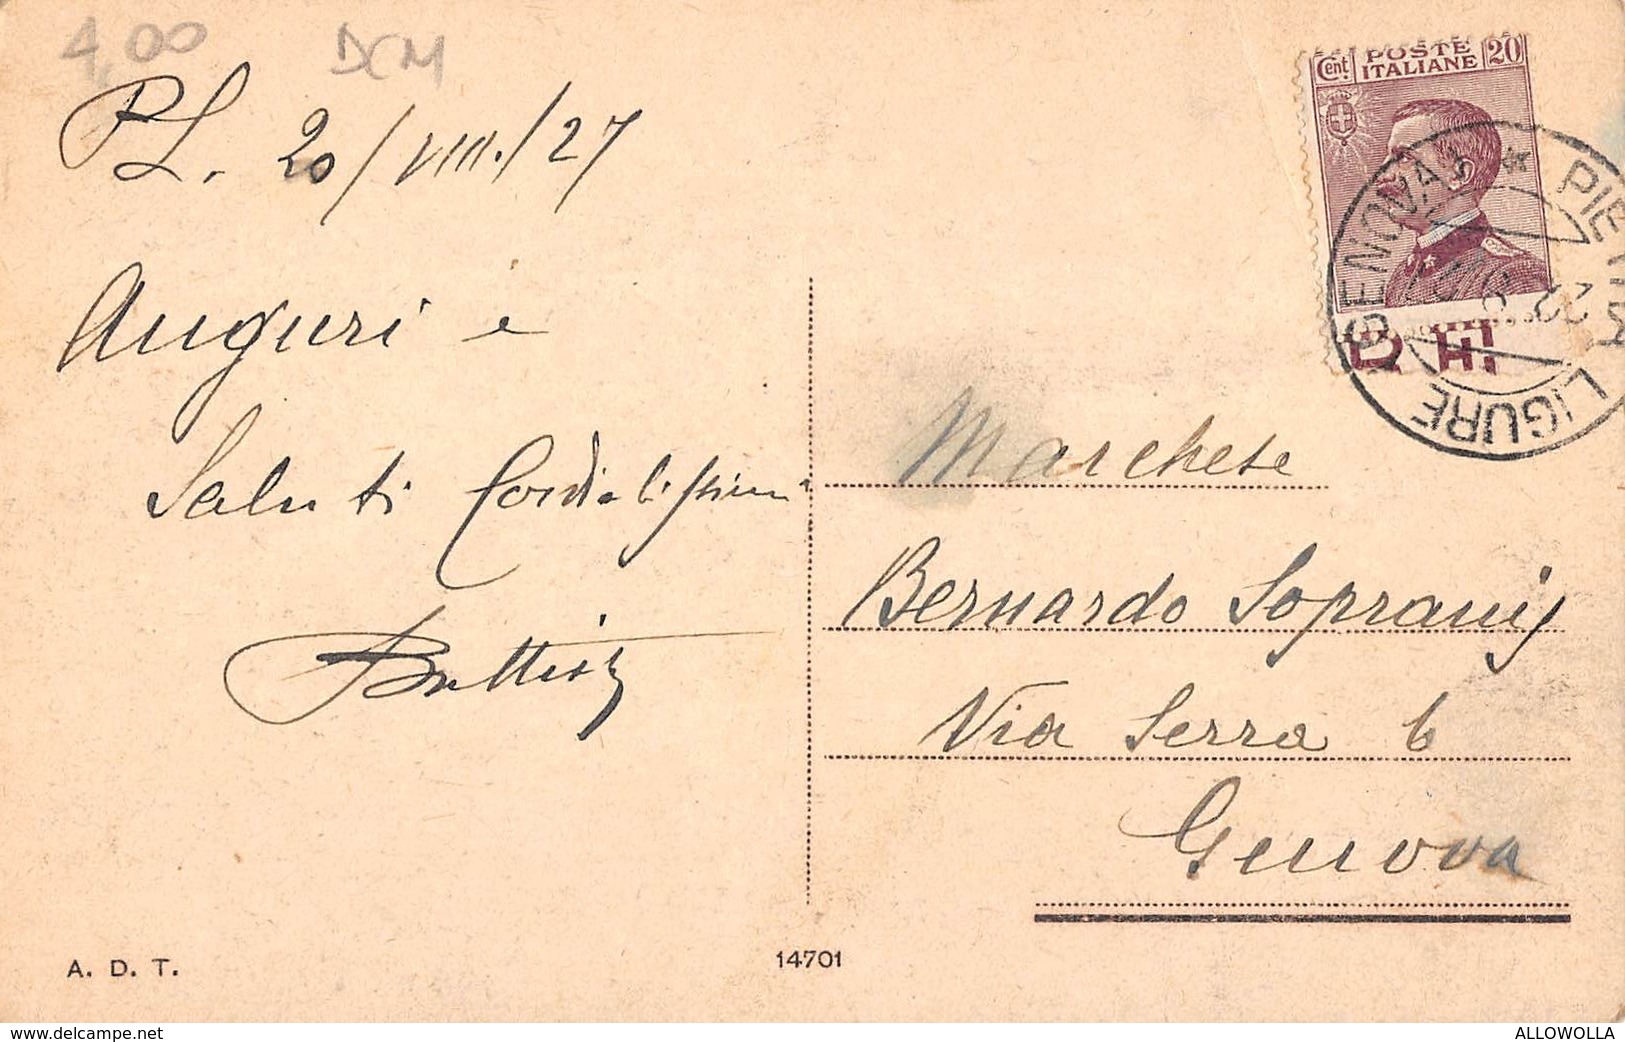 4,00 DCM
P.L. 20/VIII./27
Auguri e
Saluti Cordialissimi
Cent. POSTE ITALIANE 20
GENOVA * PIETRA LIGURE
Marchese
Bernardo Sopranis
Via Serra 6
Genova
A. D. T.
14701
www.delcampe.net
ALLOWOLLA